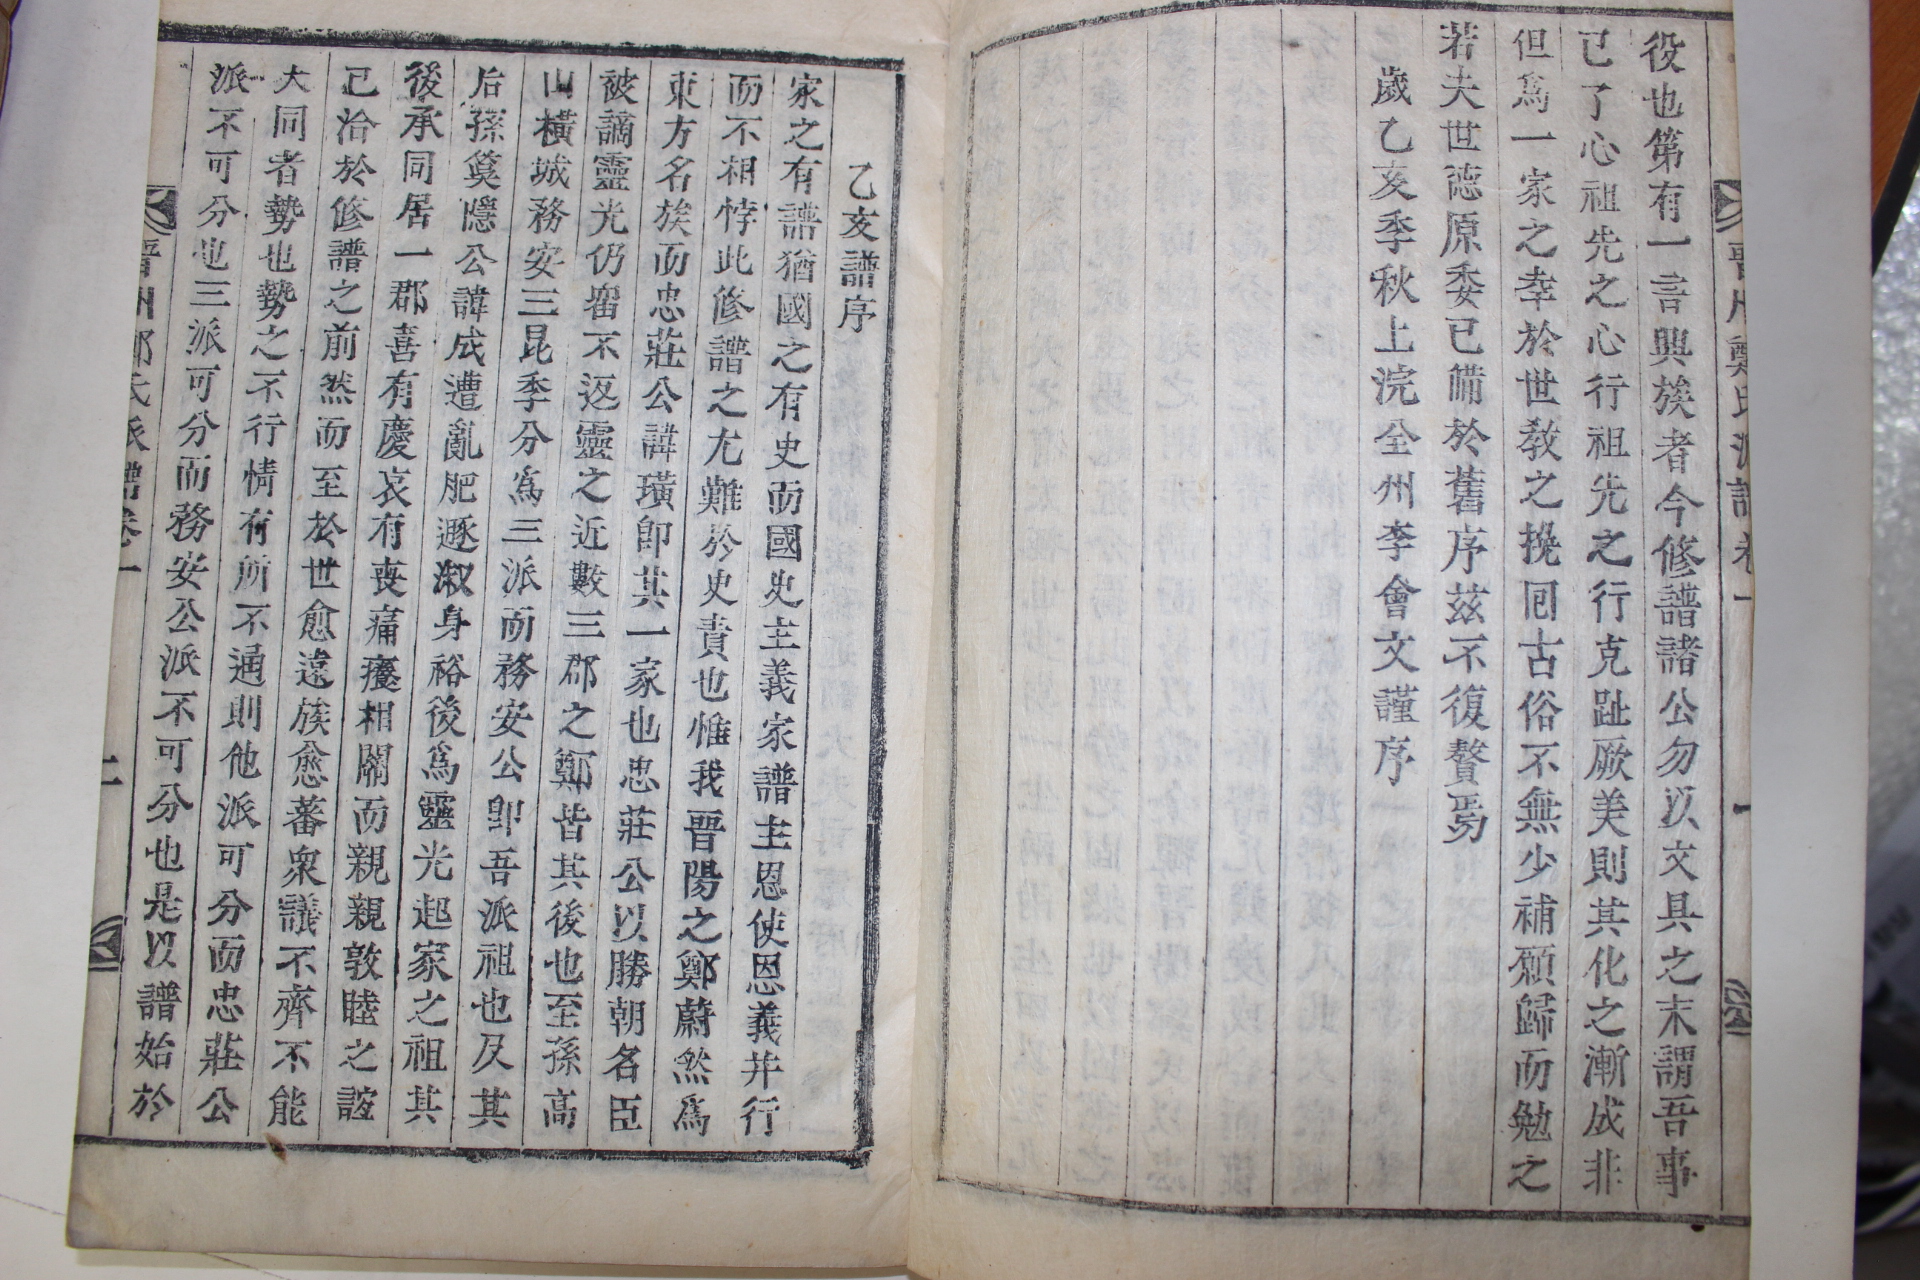 役也第有一言興族者今修譜諸公勿以文具之末謂吾事
已了心祖先之心行祖先之行克趾厥美則其化之漸成非
但爲一家之幸於世教之挽回古俗不無少補願歸而勉之
若夫世德原委已備於舊序玆不復贅焉
歲乙亥季秋上浣全州李會文謹序
乙亥譜序
家之有譜猶國之有史而國史主義家譜主恩使恩義幷行
而不相悖此修譜之尤難於史責也惟我晋陽之鄭蔚然爲
東方名族而忠莊公諱璜卽其一家也忠莊公以勝朝名臣
被謫靈光仍留不返靈之近數三郡之鄭皆其後也至孫高
山橫城務安三昆季分爲三派而務安公卽吾派祖也及其
后孫奠隱公諱成遭亂肥遯淑身裕後爲靈光起家之祖其
後承同居一郡喜有慶哀有喪痛癢相關而親親敦睦之誼
已洽於修譜之前然而至於世愈遠族愈蕃衆議不齊不能
大同者勢也勢之不行情有所不通則他派可分而忠莊公
派不可分也三派可分而務安公派不可分也是以譜始於
晋州鄭氏派譜卷一
二